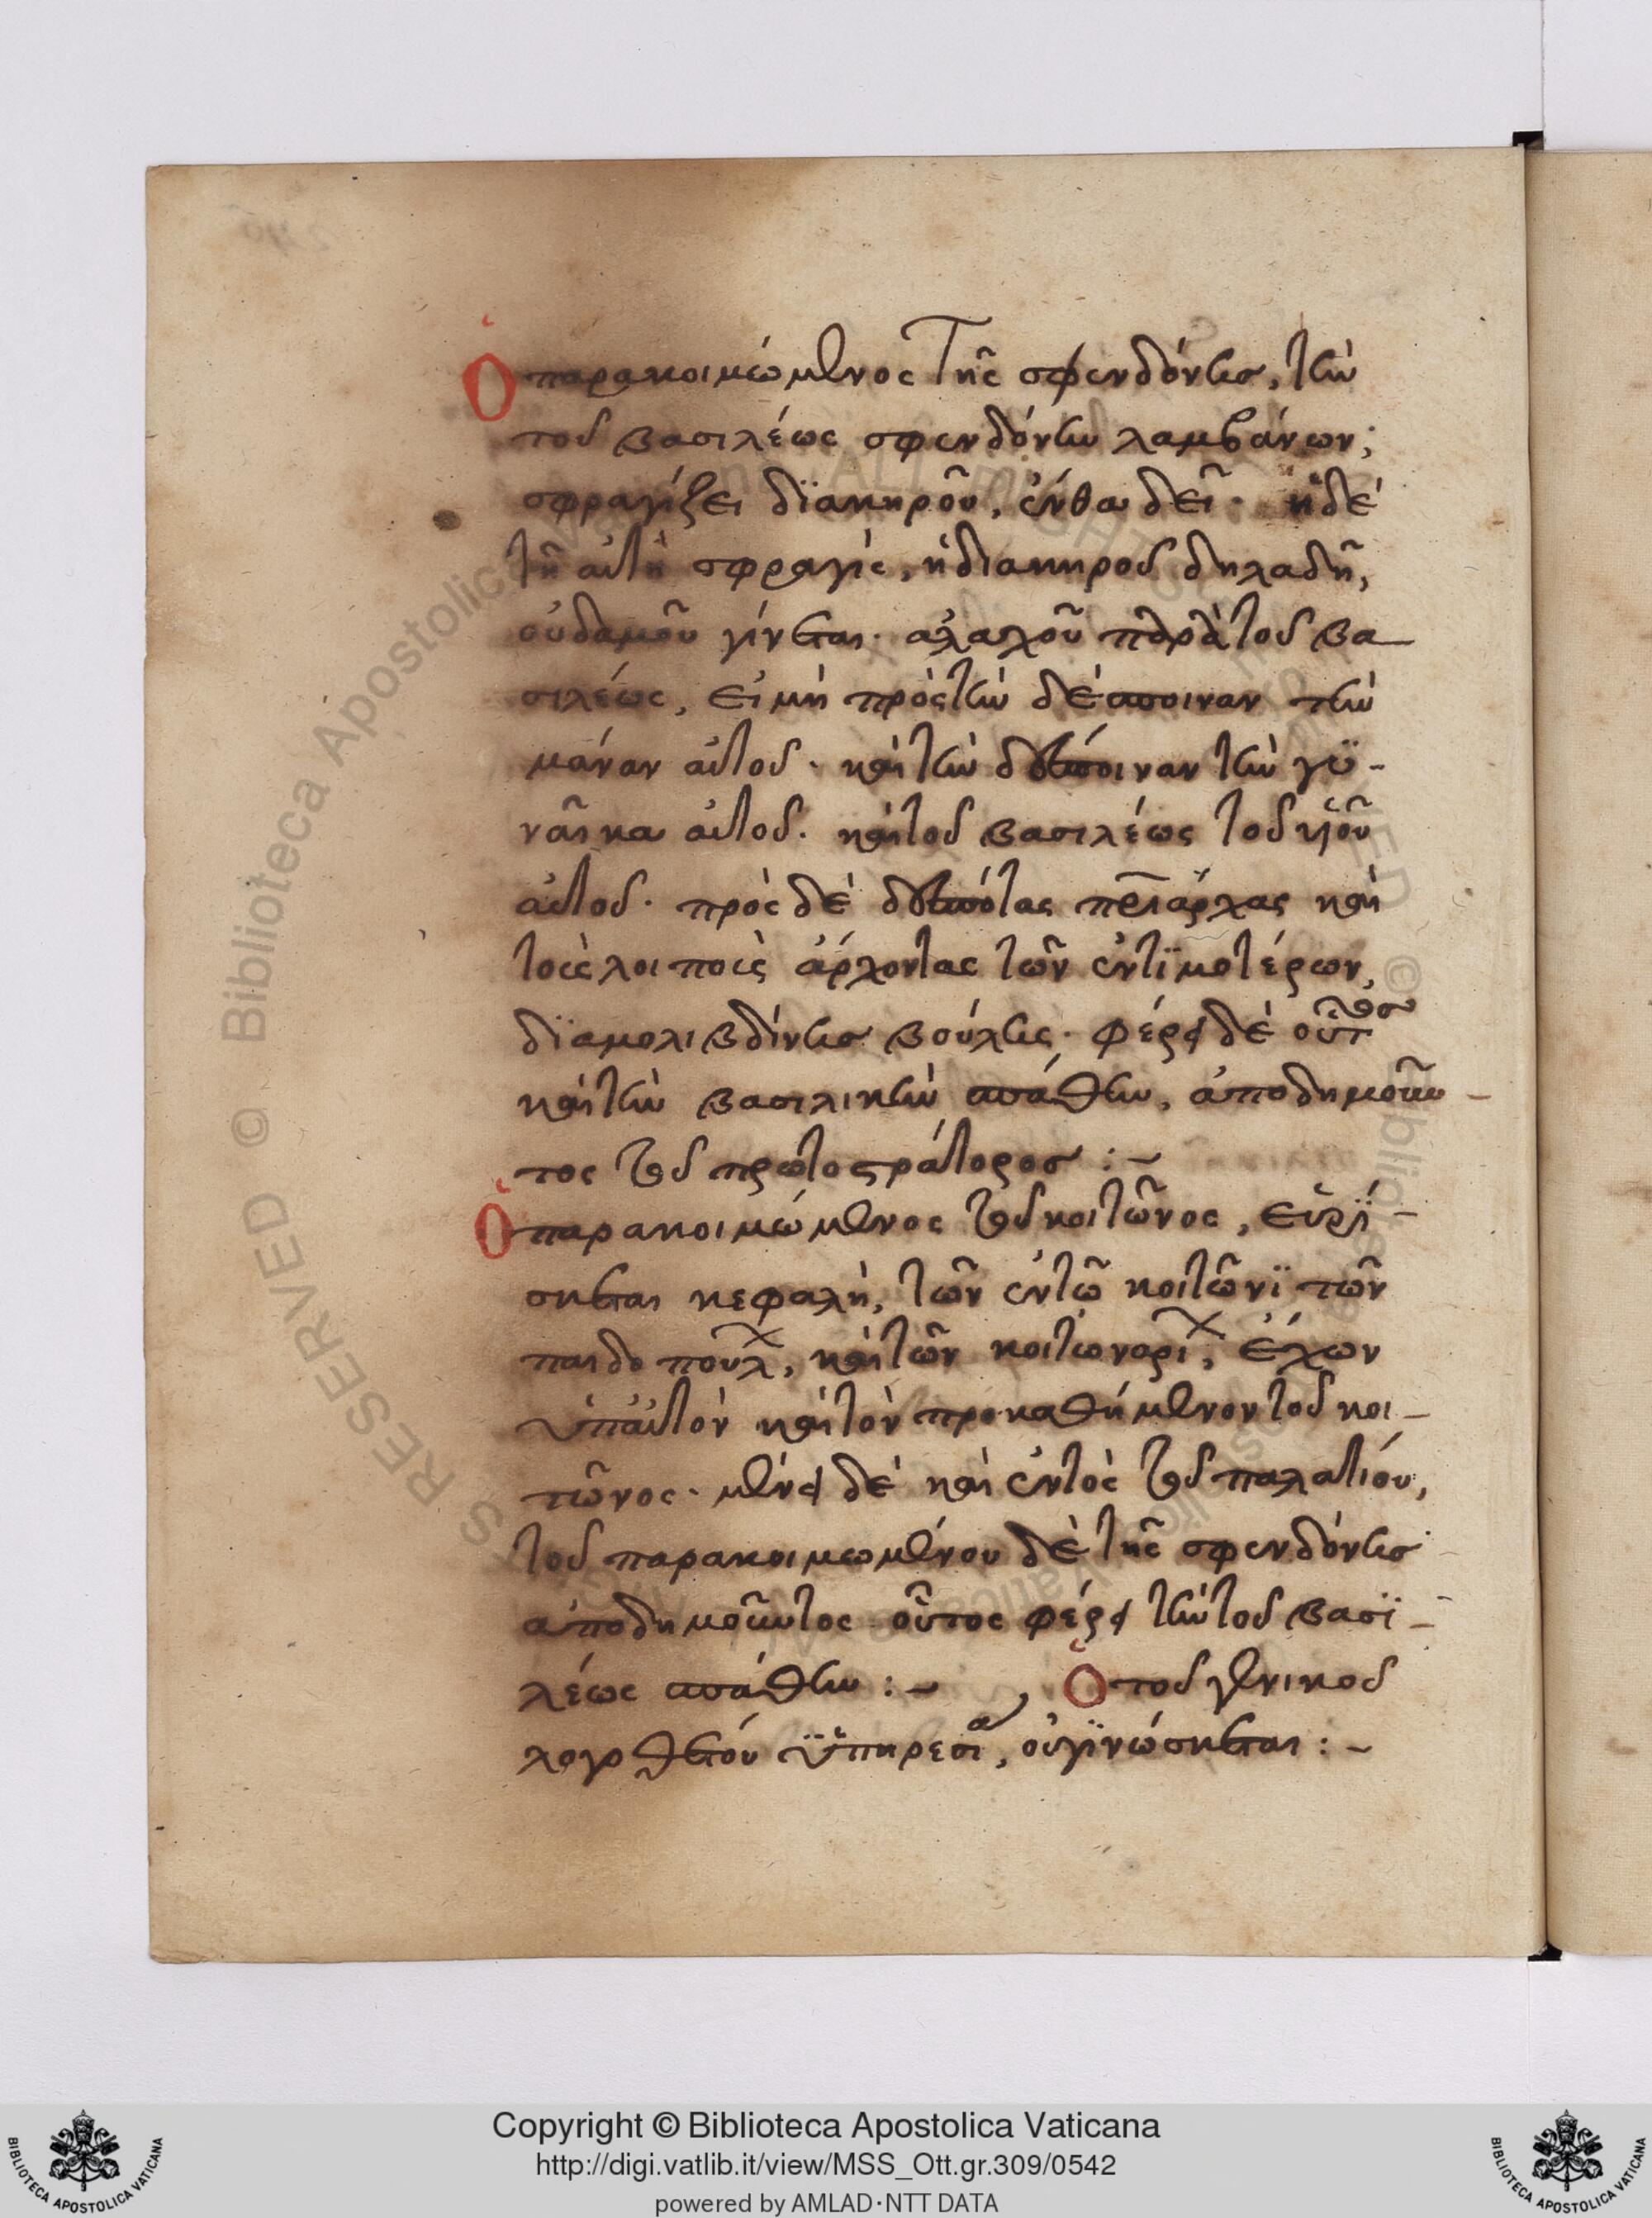 Ὁ παρακοιμώμενος τῆς σφενδόνης, τὴν
τοῦ βασιλέως σφενδόνην λαμβάνων,
σφραγίζει δϊακηροῦ, ἔνθα δεῖ· ἡ δὲ
τῆ αὐτὴ σφραγὶς, ἡ διακηροῦ δηλαδῆ,
οὐδαμοῦ γίνεται ἀλαχοῦ παρὰ τοῦ βα
σιλέως, εἰ μὴ πρὸς τὴν δέσποιναν τὴν
μάναν αὐτοῦ· καὶ τὴν δέσποιναν τὴν γϋ-
ναῖκα αὐτοῦ· καὶ τοῦ βασιλέως τοῦ υἱοῦ
αὐτοῦ· πρὸς δὲ δεσπότας πριάρχας καὶ
τοὺς λοιποὺς ἄρχοντας τῶν ἐντϊμοτέρων,
δϊαμολιβδίνης βούλης· φέρει δὲ οὗτος
καὶ τὴν βασιλικὴν σπάθην, ἀποδημοῦν-
τος τοῦ πρωτοστράτορος :-
Ὁ παρακοιμώμενος τοῦ κοιτῶνος, εὑρί-
σκεται κεφαλὴ, τῶν ἐν τῶ κοιτῶνϊ τῶν
παιδοπουλ, καὶ τῶν κοιτωναρι, ἔχων
ὑπαὐτὸν καὶ τὸν προκαθήμενον τοῦ κοι-
τῶνος· μένει δὲ καὶ ἐντὸς τοῦ παλατίου,
τοῦ παρακοιμωμένου δὲ τῆς σφενδόνης
ἀποδημοῦντος οὗτος φέρει τὴν τοῦ βασϊ-
λέως σπάθην :- Ὁ τοῦ γενικοῦ
λογοθέτου ὑπηρεσία, οὐ γϊνώσκεται :-
Copyright © Biblioteca Apostolica Vaticana
http://digi.vatlib.it/view/MSS_Ott.gr.309/0542
powered by AMLAD·NTT DATA